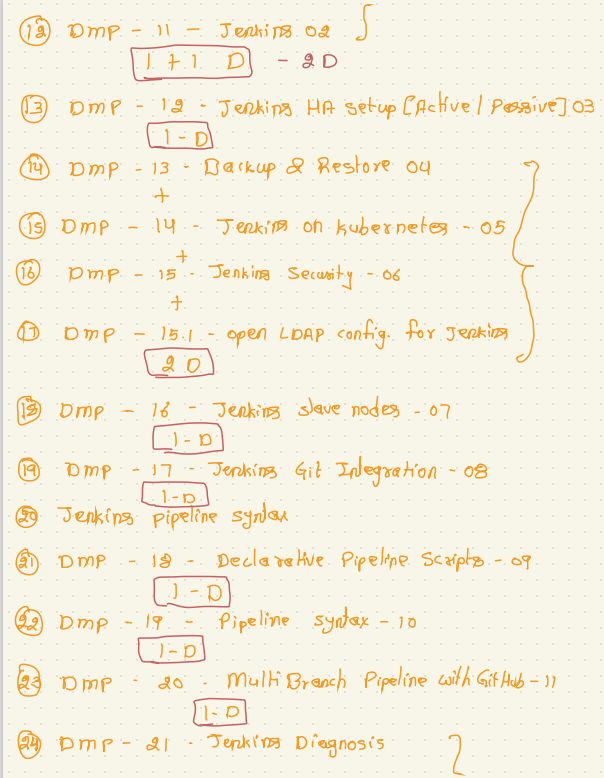 12 Dmp - 11 - Jenkins 02
1 + 1 D - 2D
13 Dmp - 12 - Jenkins HA setup [Active / Passive] 03
1 - D
14 Dmp - 13 - Backup & Restore 04
+
15 Dmp - 14 - Jenkins on kubernetes - 05
+
16 Dmp - 15 - Jenkins Security - 06
+
17 Dmp - 15.1 - open LDAP config. for Jenkins
2 D
18 Dmp - 16 - Jenkins slave nodes - 07
1 - D
19 Dmp - 17 - Jenkins Git Integration - 08
1 - D
20 Jenkins pipeline syntax
21 Dmp - 18 - Declarative Pipeline Scripts - 09
1 - D
22 Dmp - 19 - Pipeline syntax - 10
1 - D
23 Dmp - 20 - Multi Branch Pipeline with GitHub - 11
1 - D
24 Dmp - 21 - Jenkins Diagnosis